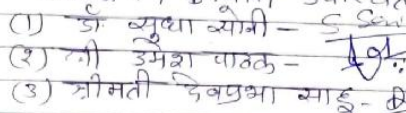 (1) डॉ. सुधा सोनी -
(२) श्री उमेश पाठक -
(3) श्रीमती देवप्रभा साहू -